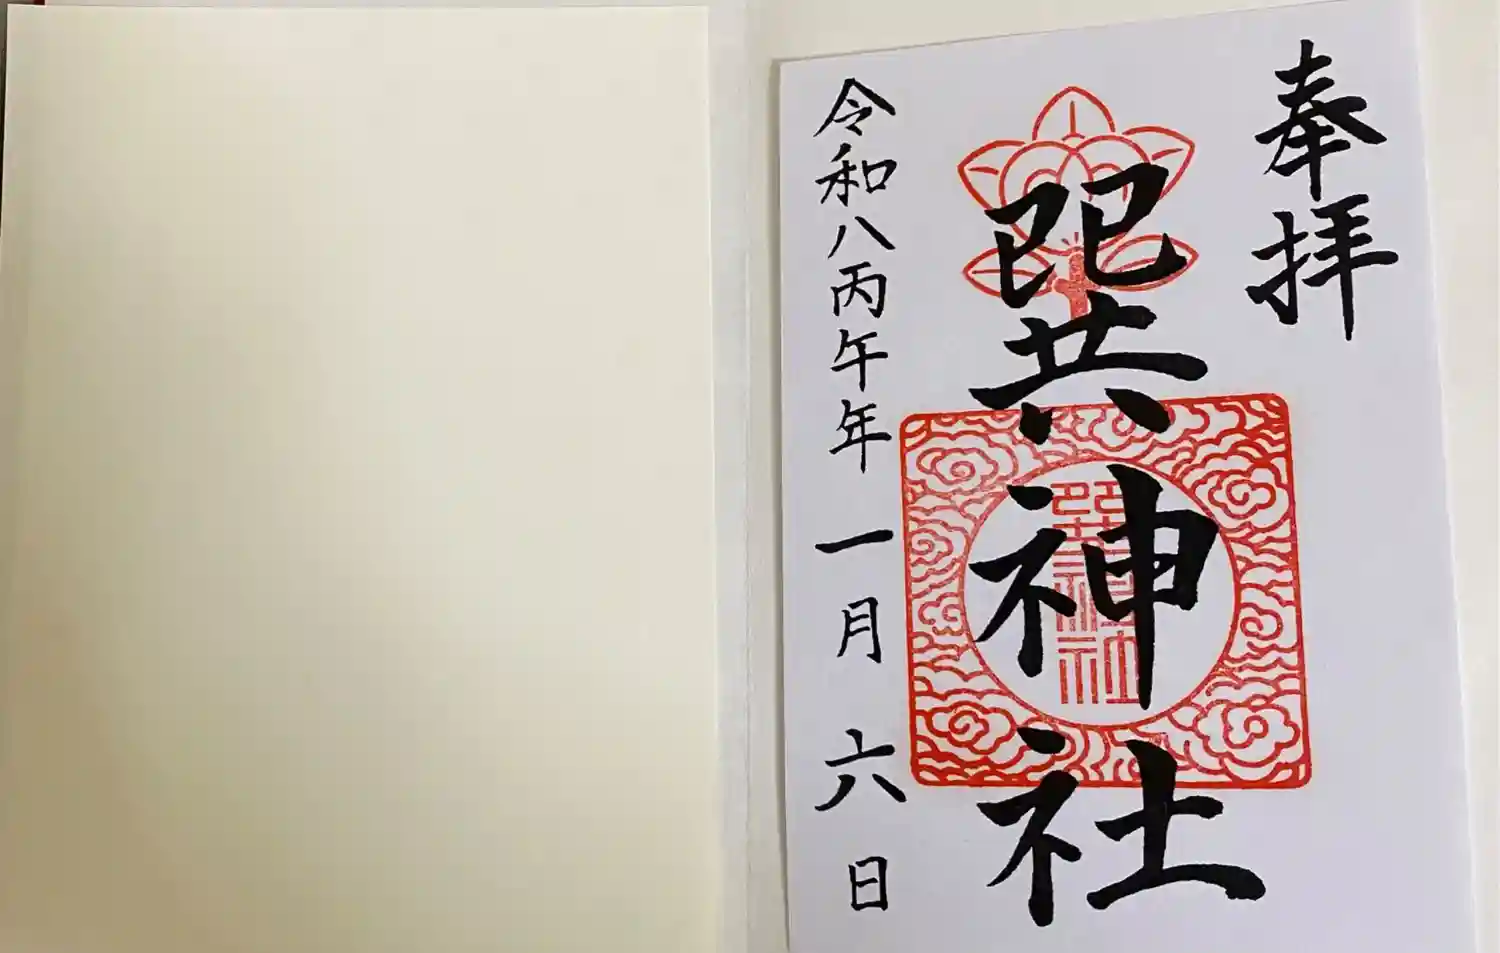 奉拝
巽神社
巽神社
令和八丙午年 一月 六日